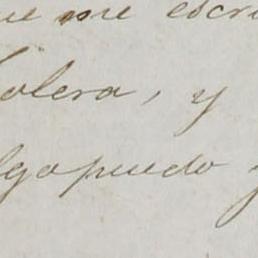 ue me escri
olera, y
lgo puedo